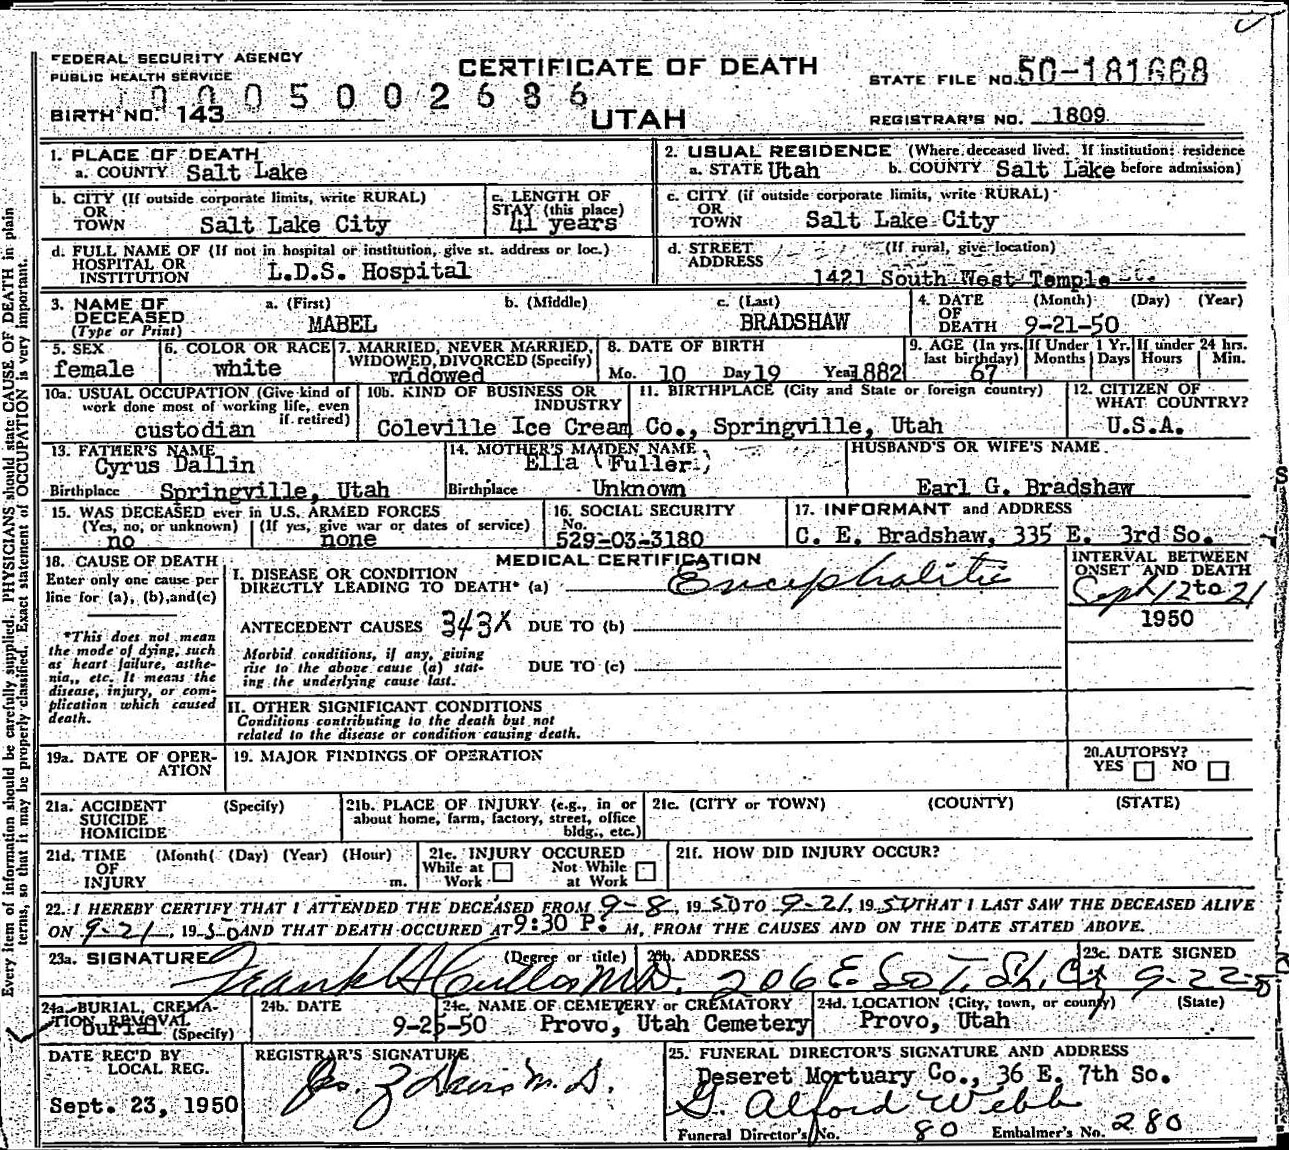 FEDERAL SECURITY AGENCY
PUBLIC HEALTH SERVICE
CERTIFICATE OF DEATH
STATE FILE NO. 50-181668
0005002686
BIRTH NO. 143
UTAH
REGISTRAR'S NO. 1809
1. PLACE OF DEATH
a. COUNTY Salt Lake
2. USUAL RESIDENCE (Where deceased lived. If institution: residence before admission)
a. STATE Utah b. COUNTY Salt Lake
b. CITY (If outside corporate limits, write RURAL)
OR
TOWN Salt Lake City
c. LENGTH OF
STAY (this place)
41 years
c. CITY (if outside corporate limits, write RURAL)
OR
TOWN Salt Lake City
d. FULL NAME OF (If not in hospital or institution, give st. address or loc.)
HOSPITAL OR
INSTITUTION L.D.S. Hospital
d. STREET (If rural, give location)
ADDRESS
1421 South West Temple St.
3. NAME OF
DECEASED
(Type or Print)
a. (First) b. (Middle) c. (Last)
MABEL BRADSHAW
4. DATE (Month) (Day) (Year)
OF
DEATH 9-21-50
5. SEX
female
6. COLOR OR RACE
white
7. MARRIED, NEVER MARRIED,
WIDOWED, DIVORCED (Specify)
widowed
8. DATE OF BIRTH
Mo. 10 Day 19 Year 1882
9. AGE (In yrs. last birthday)
67
If Under 1 Yr.
Months Days
If under 24 hrs.
Hours Min.
10a. USUAL OCCUPATION (Give kind of
work done most of working life, even
if retired)
custodian
10b. KIND OF BUSINESS OR
INDUSTRY
Coleville Ice Cream Co.,
11. BIRTHPLACE (City and State or foreign country)
Springville, Utah
12. CITIZEN OF
WHAT COUNTRY?
U.S.A.
13. FATHER'S NAME
Cyrus Dallin
Birthplace Springville, Utah
14. MOTHER'S MAIDEN NAME
Ella (Fuller)
Birthplace Unknown
HUSBAND'S OR WIFE'S NAME
Earl G. Bradshaw
15. WAS DECEASED ever in U.S. ARMED FORCES
(Yes, no, or unknown) (If yes, give war or dates of service)
no none
16. SOCIAL SECURITY
No.
529-03-3180
17. INFORMANT and ADDRESS
C. E. Bradshaw, 335 E. 3rd So.
18. CAUSE OF DEATH
Enter only one cause per
line for (a), (b), and (c)
*This does not mean
the mode of dying, such
as heart failure, asthe-
nia, etc. It means the
disease, injury, or com-
plication which caused
death.
MEDICAL CERTIFICATION
I. DISEASE OR CONDITION
DIRECTLY LEADING TO DEATH* (a) Encephalitis
ANTECEDENT CAUSES 343X DUE TO (b)
Morbid conditions, if any, giving
rise to the above cause (a) stat-
ing the underlying cause last.
DUE TO (c)
INTERVAL BETWEEN
ONSET AND DEATH
Sept 12 to 21
1950
II. OTHER SIGNIFICANT CONDITIONS
Conditions contributing to the death but not
related to the disease or condition causing death.
19a. DATE OF OPER-
ATION
19. MAJOR FINDINGS OF OPERATION
20. AUTOPSY?
YES NO
21a. ACCIDENT (Specify)
SUICIDE
HOMICIDE
21b. PLACE OF INJURY (e.g., in or
about home, farm, factory, street, office
bldg., etc.)
21c. (CITY or TOWN) (COUNTY) (STATE)
21d. TIME (Month( (Day) (Year) (Hour)
OF
INJURY m.
21e. INJURY OCCURED
While at Work Not While at Work
21f. HOW DID INJURY OCCUR?
22. I HEREBY CERTIFY THAT I ATTENDED THE DECEASED FROM 9-8, 1950 TO 9-21, 1950 THAT I LAST SAW THE DECEASED ALIVE
ON 9-21, 1950 AND THAT DEATH OCCURED AT 9:30 P. M, FROM THE CAUSES AND ON THE DATE STATED ABOVE.
23a. SIGNATURE (Degree or title)
Frank M.D.
23b. ADDRESS
206 E. So T.
23c. DATE SIGNED
9-22-
24a. BURIAL, CREMA-
TION REMOVAL
Burial (Specify)
24b. DATE
9-25-50
24c. NAME OF CEMETERY or CREMATORY
Provo, Utah Cemetery
24d. LOCATION (City, town, or county) (State)
Provo, Utah
DATE REC'D BY
LOCAL REG.
Sept. 23, 1950
REGISTRAR'S SIGNATURE
Jos. Z Davis M.D.
25. FUNERAL DIRECTOR'S SIGNATURE AND ADDRESS
Deseret Mortuary Co., 36 E. 7th So.
G. Alford Webb
Funeral Director's No. 80 Embalmer's No. 280
Every item of information should be carefully supplied. PHYSICIANS should state CAUSE OF DEATH in plain
terms, so that it may be properly classified. Exact statement of OCCUPATION is very important.